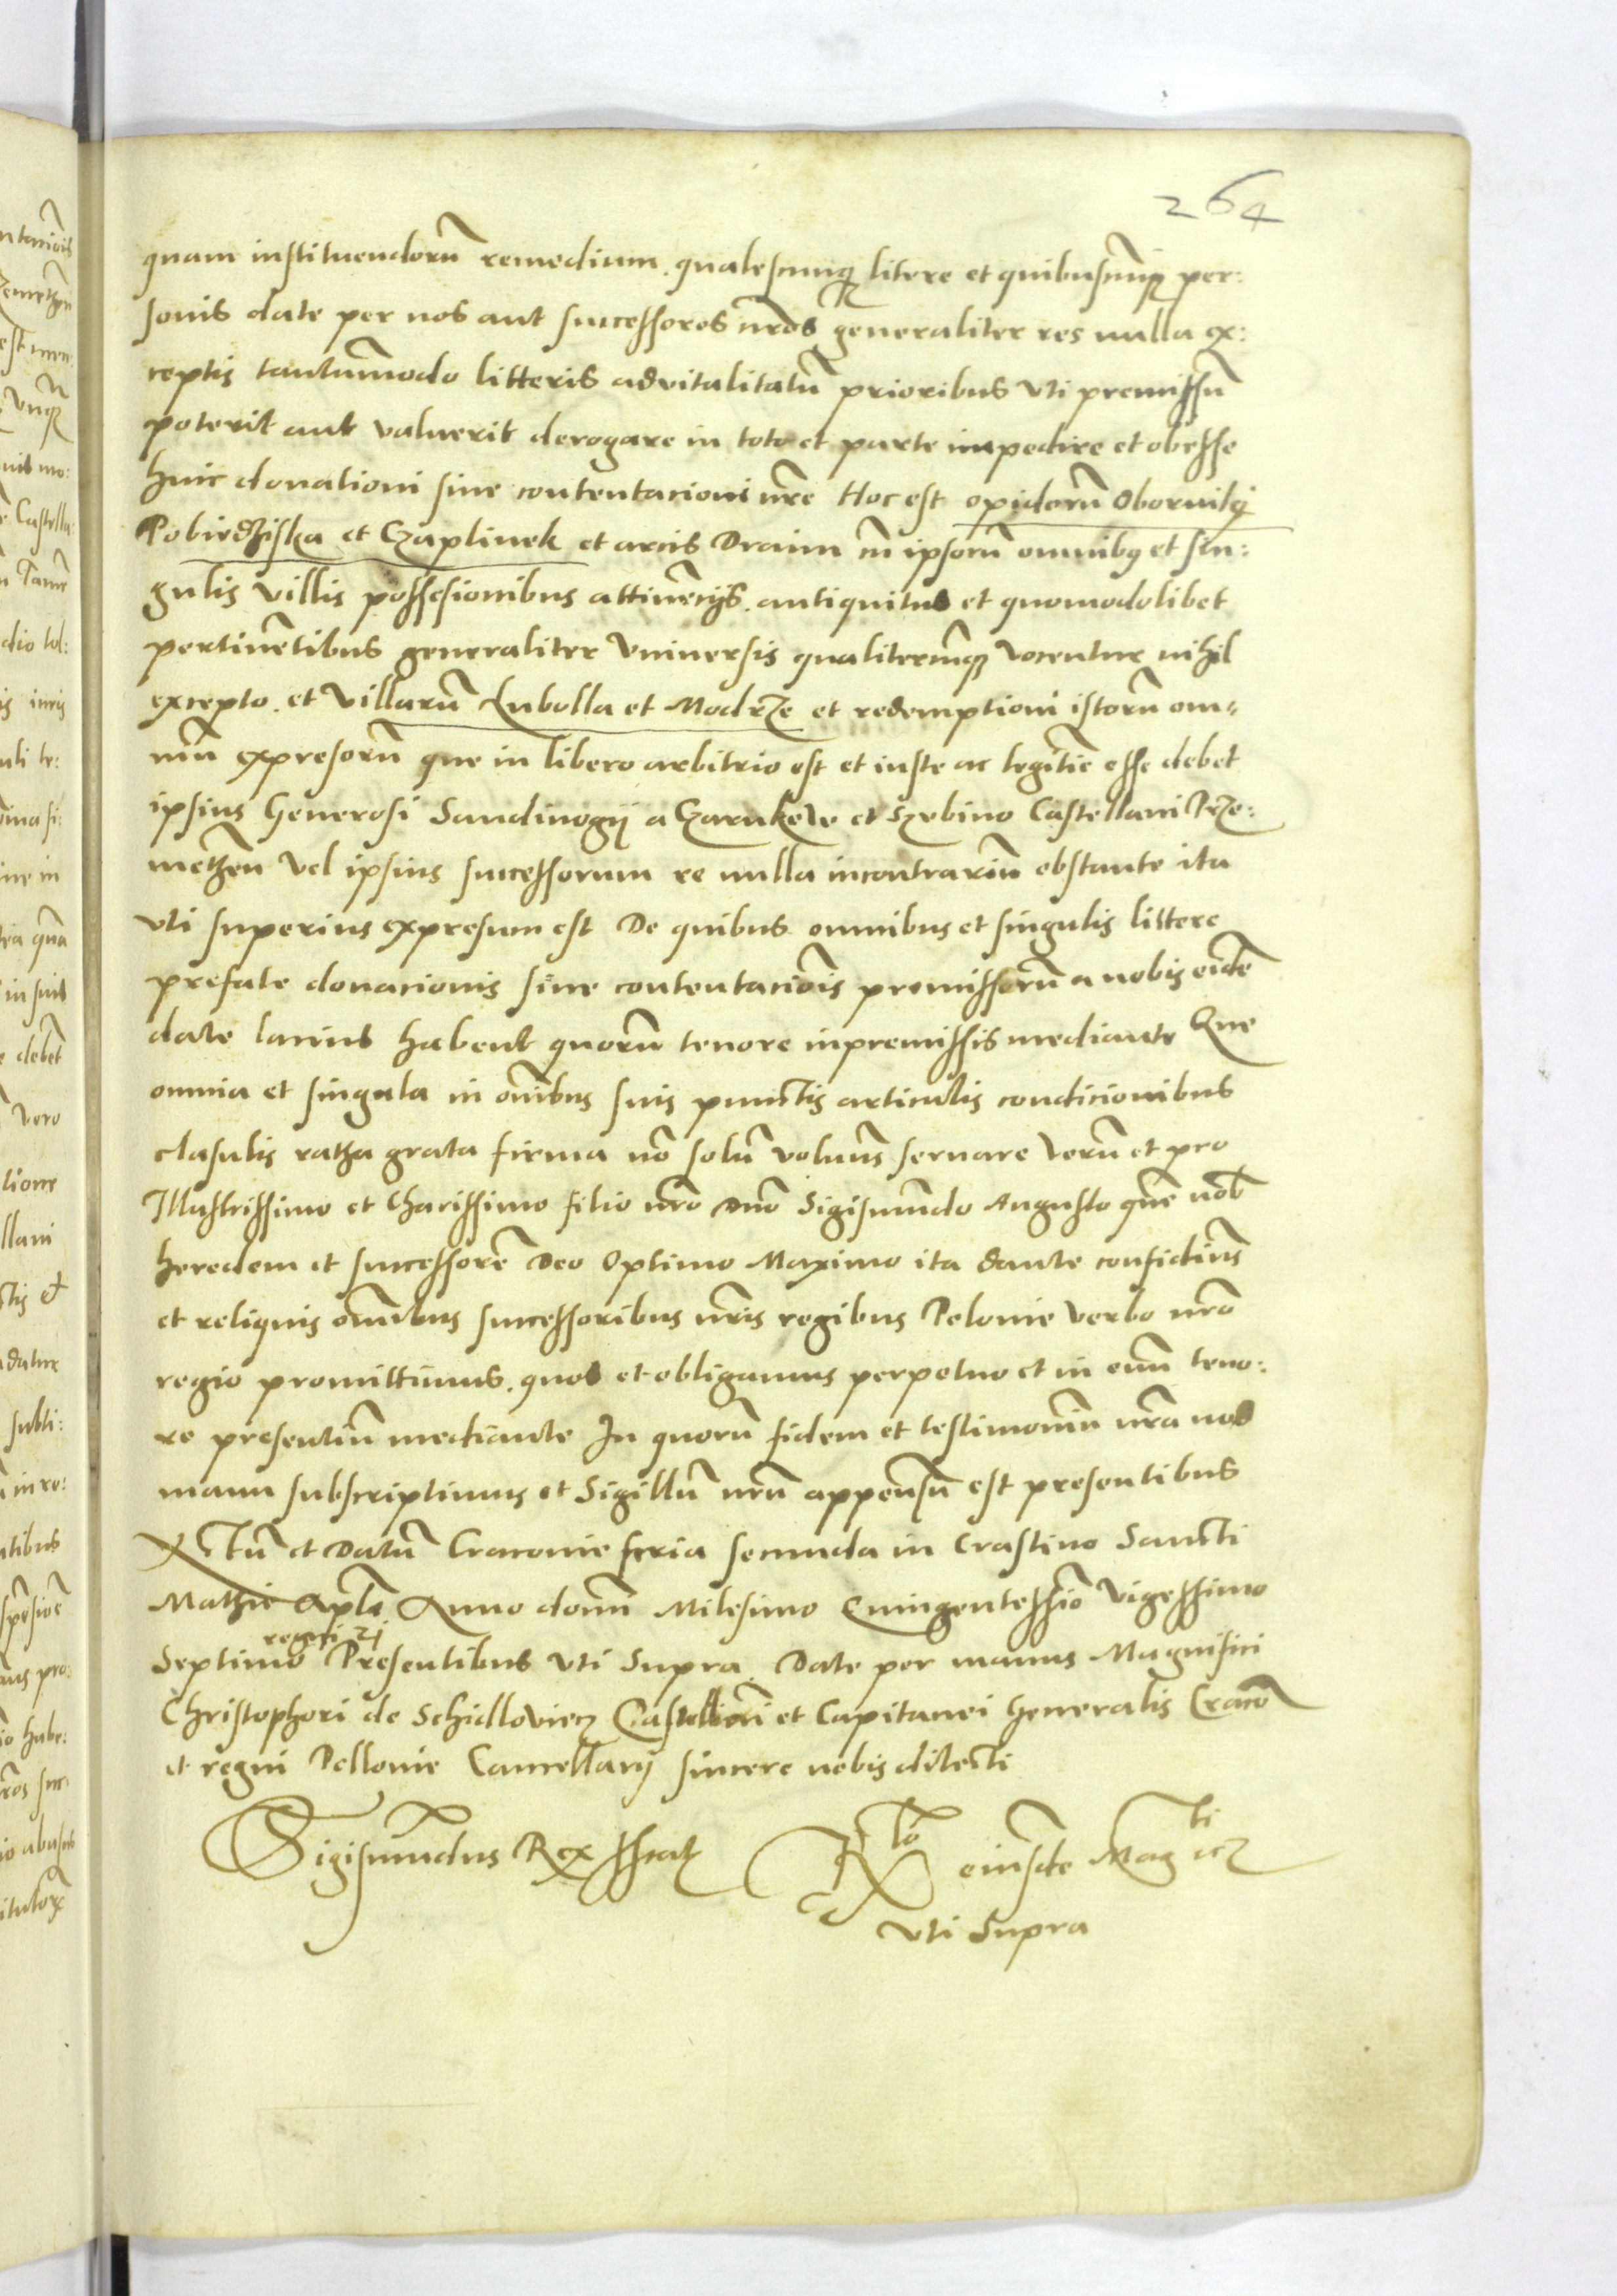 264
quam instituendorū remedium. qualescunqꝫ litere et quibuscūqꝫ per:
sonis date per nos aut successores n̄ros generaliter res nulla ex:
ceptis tantūmodo litteris advitalitatū prioribus vti premissū
poterit aut valuerit derogare in toto et parte impedire et obesse
huic donationi sive contentacioni n̄re Hoc est opidorū Obornikij
Pobiedziska et Czaplinek et arcis Draim cū ipsorū omnibꝫ et sin:
gulis villis possesionibus attinēcijs. antiquitus et quomodolibet
pertinētibus generaliter vniversis qualitercūqꝫ vocentur nihil
excepto. et villarū Lubolla et Modrze et redemptioni istorū om=
niū expresorū que in libero arbitrio est et iuste ac legitīe esse debet
ipsius Generosi Sandivogij a Czarnkow et Szobino Castellani Prze:
methen̄ vel ipsius successorum re nulla incontrariū obstante ita
vti superius expresum est De quibus omnibus et singulis littere
prefate donacionis sive contentaciōis premissorū a nobis eidē
date lacius habent quorū tenore inpremissis mediante Que
omnia et singula in oīnibus suis punctis articulis condicionibus
clasulis ratha grata firma nō solū volum̄s servare verū et pro
Illustrissimo et Charissimo filio n̄ro Dno Sigismūdo Augusto quē nob̄
heredem et successorē Deo Optimo Maximo ita dante confidim̄s
et reliquis om̄ibus successoribus n̄ris regibus Polonie verbo n̄ro
regio promittimus. quos et obligamus perpetuo et in evū teno:
re presentiū mediante In quorū fidem et testimoniū n̄ra nos
manu subscriptimus et Sigillū n̄rū appensū est presentibus
Actū et Datū Cracovie feria secunda in Crastino Sancti
Mathie Apl̄i Anno domi Milesimo Quingentessīo Vigessimo
Septimo regni 21 Presentibus vti Supra. Date per manus Magnifici
Christophori de Schidloviecz Castellani et Capitanei Generalis Cracō
et regni Pollonie Cancellarij sincere nobis dilecti
Sigismūdus Rex sscrat
Rlo eiusdē Mag ti
vti Supra